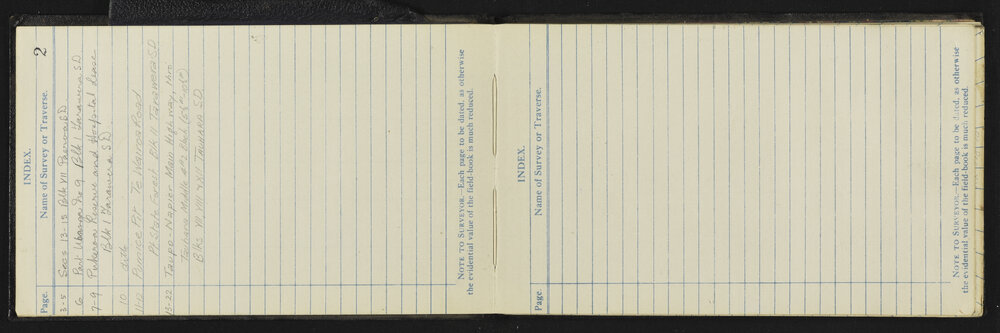 2
INDEX.
Page. Name of Survey or Traverse.
3-5 Secs 13-15 Blk VII Paeroa SD
6 Part No 9 Blk I Tarawera S.D.
7-9 Reserve and Hospital Lease
Blk I Tarawera SD
10 ditto
11-12 Pumice Pit Te Waroa Road
Pt State Forest Blk II Tarawera SD
13-22 Taupo Napier Main Highway, thro
Tauhara Middle
Blks VII, VIII, XII Tauhara SD.
NOTE TO SURVEYOR.—Each page to be dated, as otherwise
the evidential value of the field-book is much reduced.
INDEX.
Page. Name of Survey or Traverse.
NOTE TO SURVEYOR.—Each page to be dated, as otherwise
the evidential value of the field-book is much reduced.